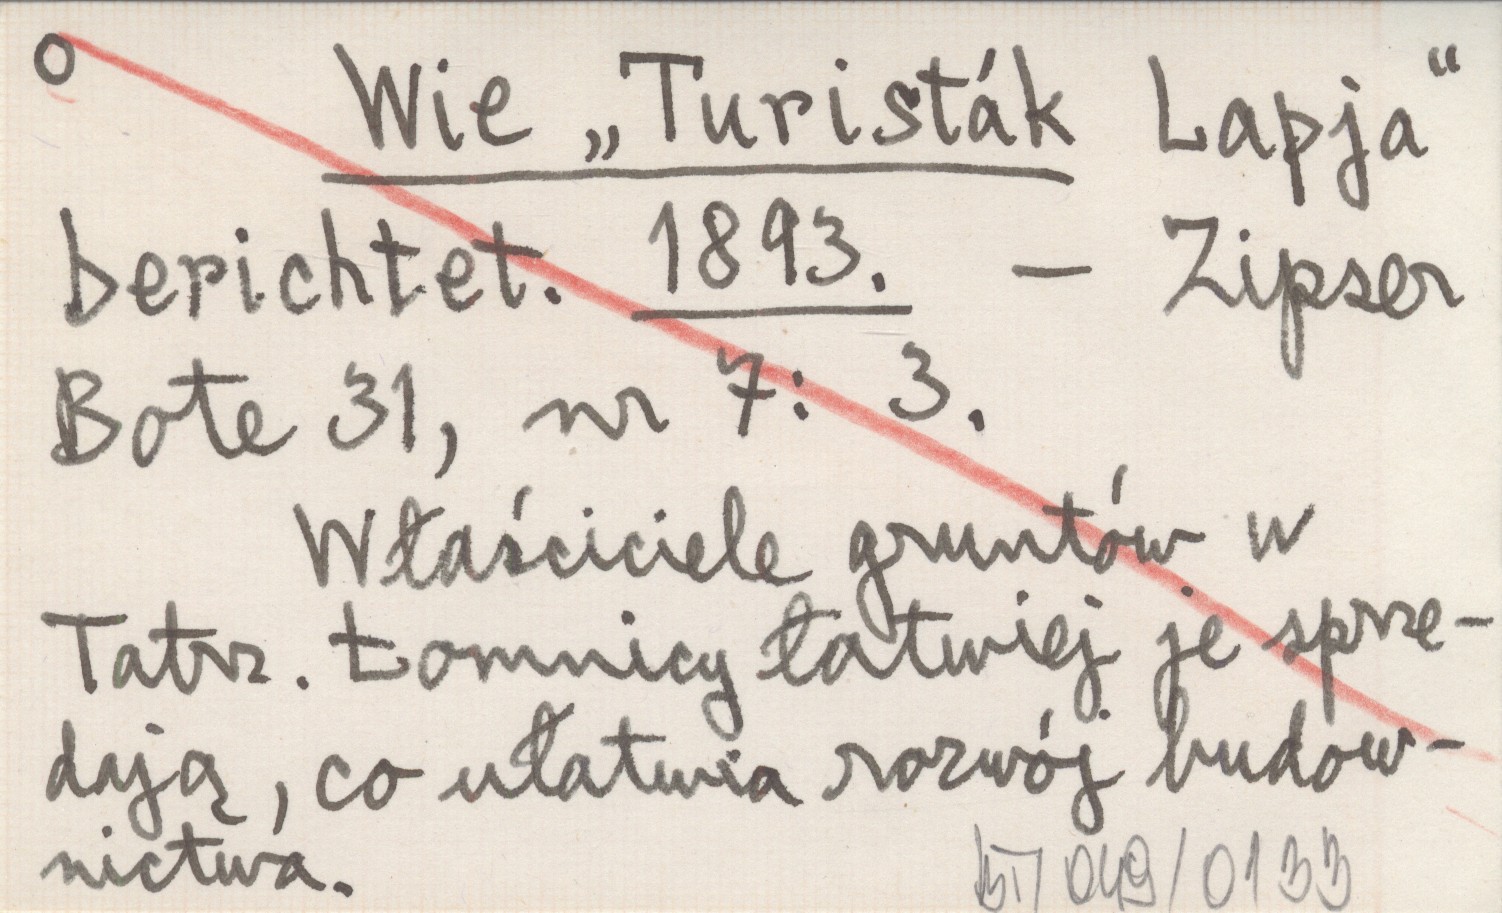 o Wie „Turisták Lapja“
berichtet. 1893. — Zipser
Bote 31, nr 7: 3.
Właściciele gruntów w
Tatrz. Łomnicy łatwiej je sprze-
dają, co ułatwia rozwój budow-
nictwa.
049/0133